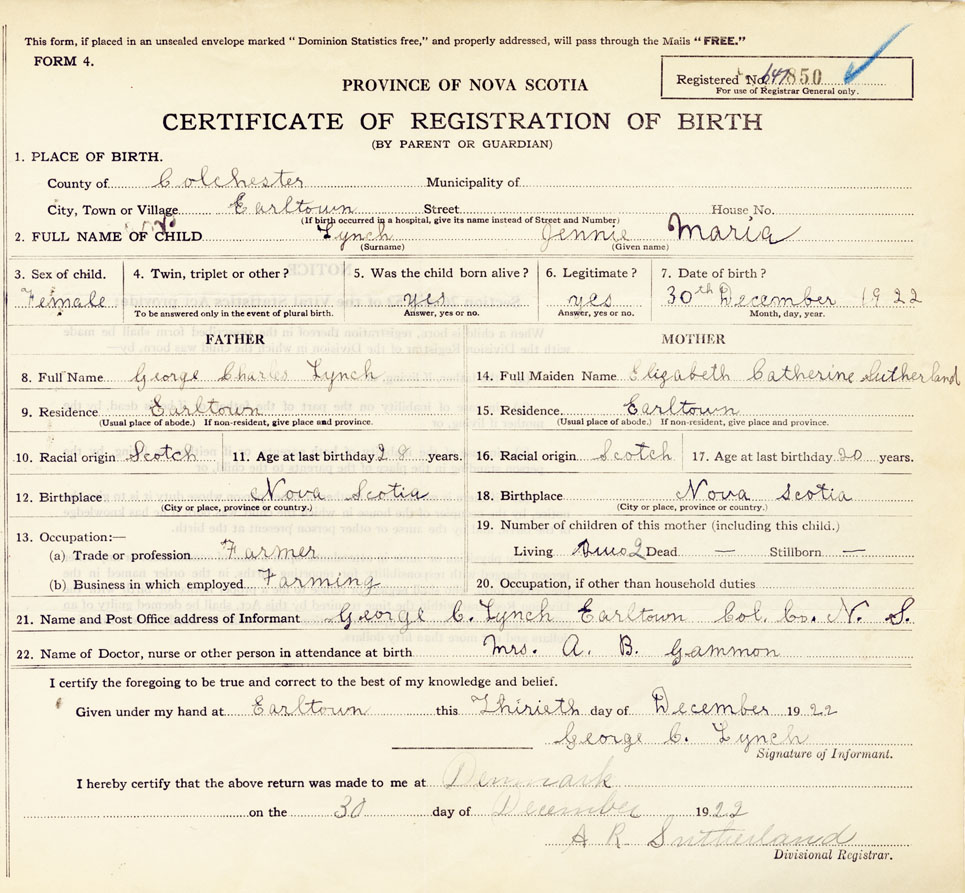 This form, if placed in an unsealed envelope marked "Dominion Statistics free," and properly addressed, will pass through the Mails "FREE."
FORM 4.
PROVINCE OF NOVA SCOTIA
Registered No. 850
For use of Registrar General only.
CERTIFICATE OF REGISTRATION OF BIRTH
(BY PARENT OR GUARDIAN)
1. PLACE OF BIRTH.
County of Colchester Municipality of
City, Town or Village Earltown Street House No.
(If birth occurred in a hospital, give its name instead of Street and Number)
2. FULL NAME OF CHILD Lynch Jennie Maria
(Surname) (Given name)
3. Sex of child. 4. Twin, triplet or other? 5. Was the child born alive? 6. Legitimate? 7. Date of birth?
Female yes yes 30th December 1922
To be answered only in the event of plural birth. Answer, yes or no. Answer, yes or no. Month, day, year.
FATHER MOTHER
8. Full Name George Charles Lynch 14. Full Maiden Name Elizabeth Catherine Sutherland
9. Residence Earltown 15. Residence. Earltown
(Usual place of abode.) If non-resident, give place and province. (Usual place of abode.) If non-resident, give place and province.
10. Racial origin Scotch 11. Age at last birthday 28 years. 16. Racial origin Scotch 17. Age at last birthday 20 years.
12. Birthplace Nova Scotia 18. Birthplace Nova Scotia
(City or place, province or country.) (City or place, province or country.)
19. Number of children of this mother (including this child.)
13. Occupation:—
(a) Trade or profession Farmer Living 2 Dead — Stillborn —
(b) Business in which employed Farming 20. Occupation, if other than household duties
21. Name and Post Office address of Informant George C. Lynch Earltown Col. Co. N. S.
22. Name of Doctor, nurse or other person in attendance at birth Mrs. A. B. Gammon
I certify the foregoing to be true and correct to the best of my knowledge and belief.
Given under my hand at Earltown this Thirieth day of December 1922
George C. Lynch
Signature of Informant.
I hereby certify that the above return was made to me at Denmark
on the 30 day of December 1922
A R Sutherland
Divisional Registrar.